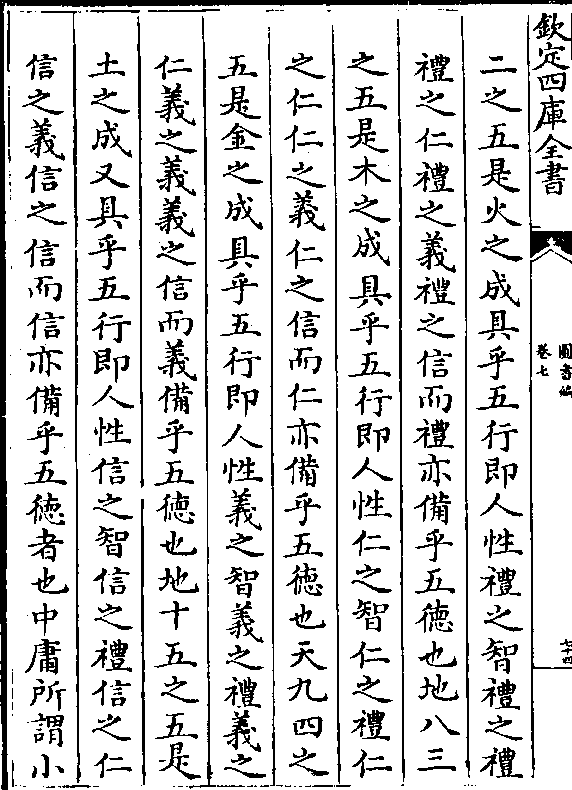 欽定四庫全書
圖書編
卷七
七十四
二之五是火之成具乎五行即人性禮之智禮之禮
禮之仁禮之義禮之信而禮亦備乎五徳也地八三
之五是木之成具乎五行即人性仁之智仁之禮仁
之仁仁之義仁之信而仁亦備乎五徳也天九四之
五是金之成具乎五行即人性義之智義之禮義之
仁義之義義之信而義備乎五徳也地十五之五是
土之成又具乎五行即人性信之智信之禮信之仁
信之義信之信而信亦備乎五徳者也中庸所謂小